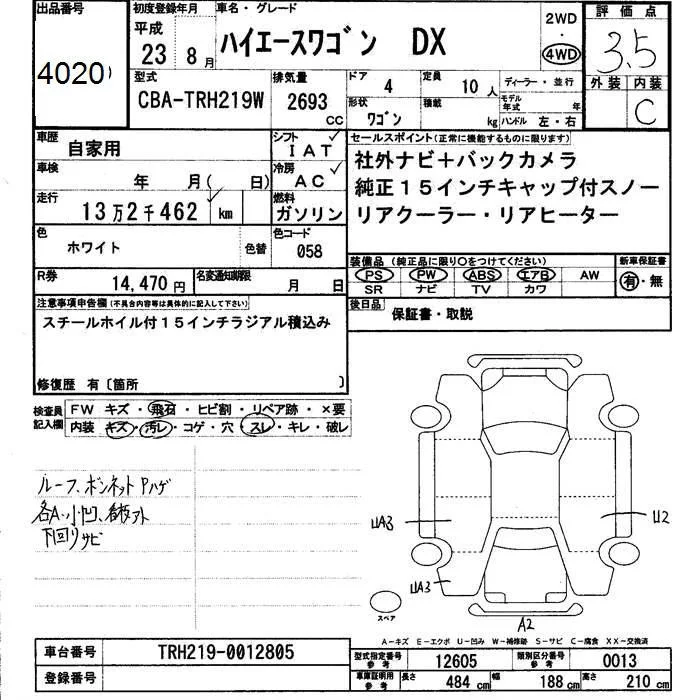 出品番号
4020
初度登録年月
平成
23 8月
車名・グレード
ハイエースワゴン DX
2WD
・
4WD
評価点
3.5
外装 内装
C
型式
CBA-TRH219W
排気量
2693
cc
ドア
4
定員
10人
ディーラー・並行
形状
ワゴン
積載
kg
モデル年式
年
ハンドル 左・右
車歴
自家用
シフト
IAT
車検
年 月( 日)
冷房
AC
走行
13万2千462 km
燃料
ガソリン
色
ホワイト
色替
色コード
058
R券
14,470円
名変通知期限
月 日
セールスポイント(正常に機能するものに限ります)
社外ナビ+バックカメラ
純正15インチキャップ付スノー
リアクーラー・リアヒーター
装備品(純正品に限り○をつけてください)
PS PW ABS エアB AW
SR ナビ TV カワ
新車保証書
有・無
後日品
保証書・取説
注意事項申告欄(不具合内容等は具体的に記入して下さい)
スチールホイル付15インチラジアル積込み
修復歴 有〔箇所 〕
検査員記入欄
FW キズ・飛石・ヒビ割・リペア跡・×要
内装 キズ・汚レ・コゲ・穴・スレ・キレ・破レ
ルーフ、ボンネットPハゲ
各A・小凹、
下回りサビ
UA3
U2
UA3
A2
スペア
A-キズ E-エクボ U-凹み W-補修跡 S-サビ C-腐食 XX-交換済
車台番号
TRH219-0012805
登録番号
型式指定番号
参考
12605
類別区分番号
参考
0013
車庫証明用
参考
長さ 484cm 幅 188cm 高さ 210cm